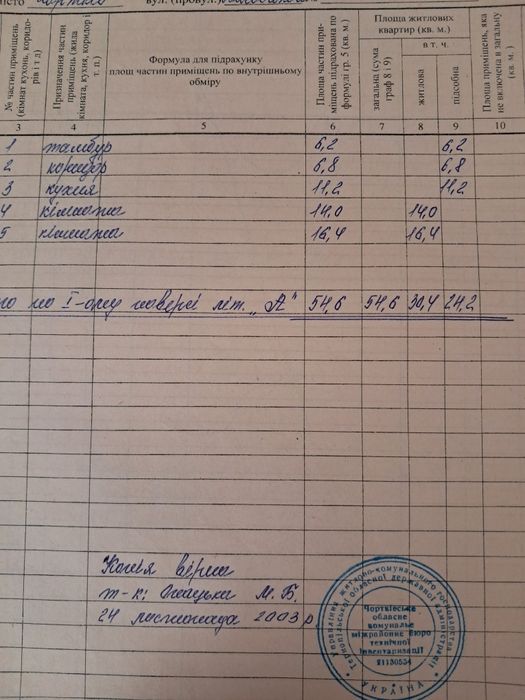 № частин приміщень (кімнат кухонь, коридорів і т д)
Призначення частин приміщень (жила кімната, кухня, коридор і т. п.)
Формула для підрахунку
площ частин приміщень по внутрішньому
обміру
Площа частин приміщень підрахована по формулі гр. 5 (кв. м.)
Площа житлових
квартир (кв. м.)
загальна (сума граф 8 і 9)
в т. ч.
житлова
підсобна
Площа приміщень, яка не включена в загальну (кв. м.)
3 4 5 6 7 8 9 10
1 тамбур 6,2 6,2
2 коридор 6,8 6,8
3 кухня 11,2 11,2
4 кімната 14,0 14,0
5 кімната 16,4 16,4
по І-ому поверсі літ. „А" 54,6 54,6 30,4 24,2
Копія вірна
т-к: М. Б.
24 листопада 2003 р.
Управління житлово-комунального господарства
Тернопільської обласної державної адміністрації
Чортківське
обласне
комунальне
міжрайонне бюро
технічної
інвентаризації
21130554
УКРАЇНА